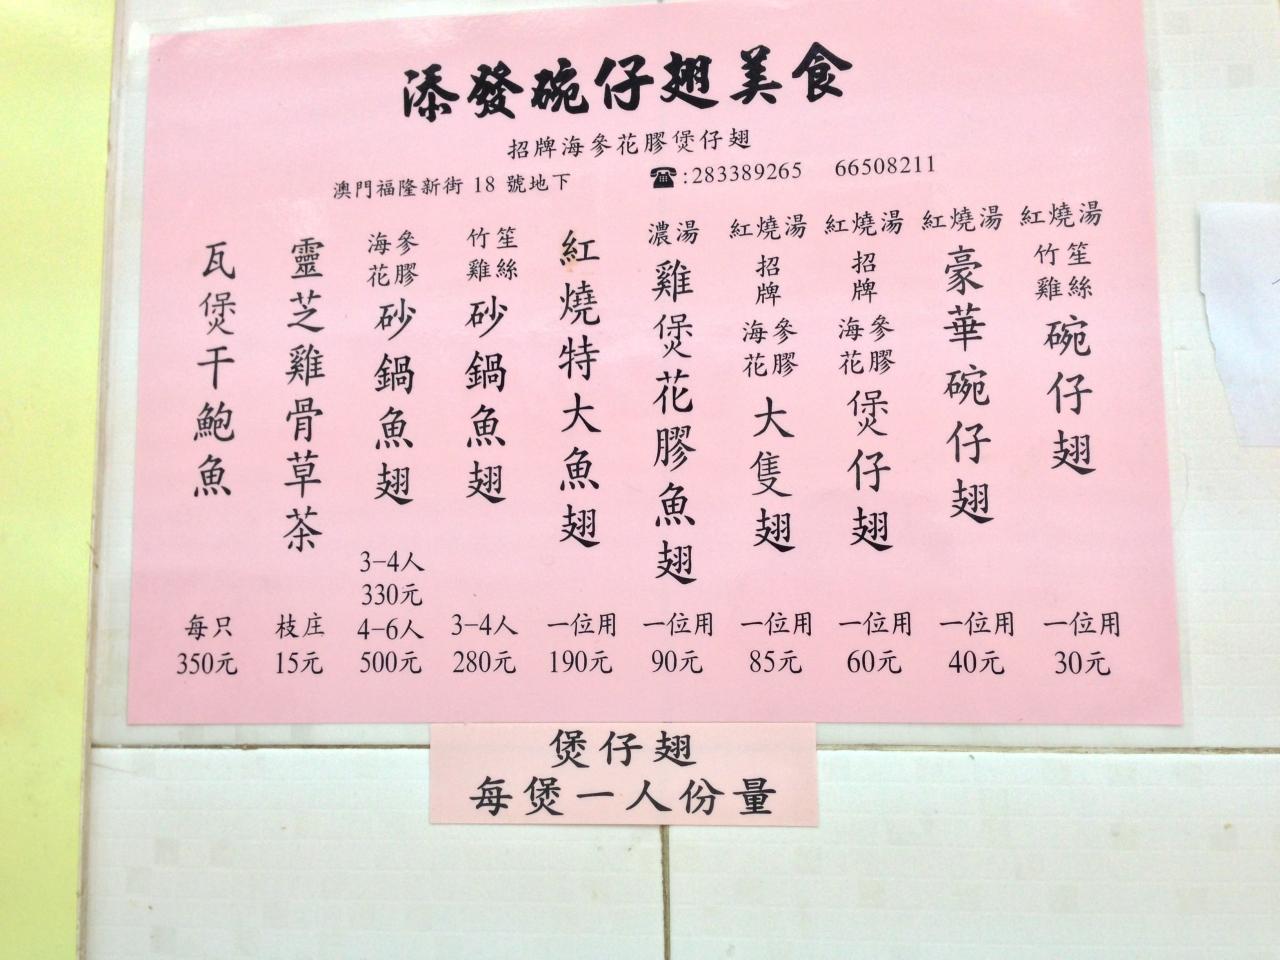 添發碗仔翅美食
招牌海參花膠煲仔翅
澳門福隆新街 18 號地下 ☎:283389265 66508211
紅燒湯 竹笙雞絲 碗仔翅 一位用 30元
紅燒湯 豪華碗仔翅 一位用 40元
紅燒湯 招牌 海參花膠 煲仔翅 一位用 60元
紅燒湯 招牌 海參花膠 大隻翅 一位用 85元
濃湯 雞煲花膠魚翅 一位用 90元
紅燒特大魚翅 一位用 190元
竹笙雞絲 砂鍋魚翅 3-4人 280元
海參花膠 砂鍋魚翅 3-4人 330元 4-6人 500元
靈芝雞骨草茶 枝庄 15元
瓦煲干鮑魚 每只 350元
煲仔翅
每煲一人份量